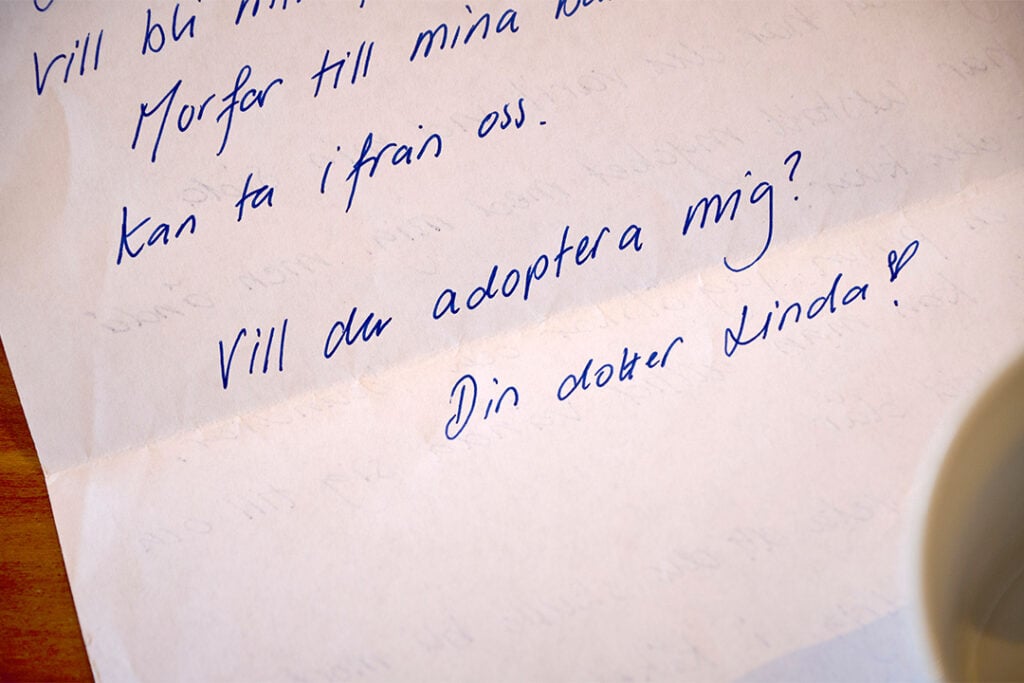 Vill bli
Morfar till mina
kan ta ifrån oss.
Vill du adoptera mig?
Din dotter Linda!